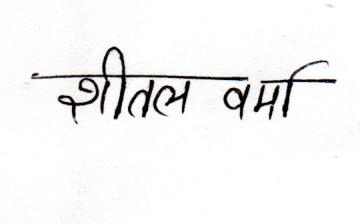 शीतल वर्मा